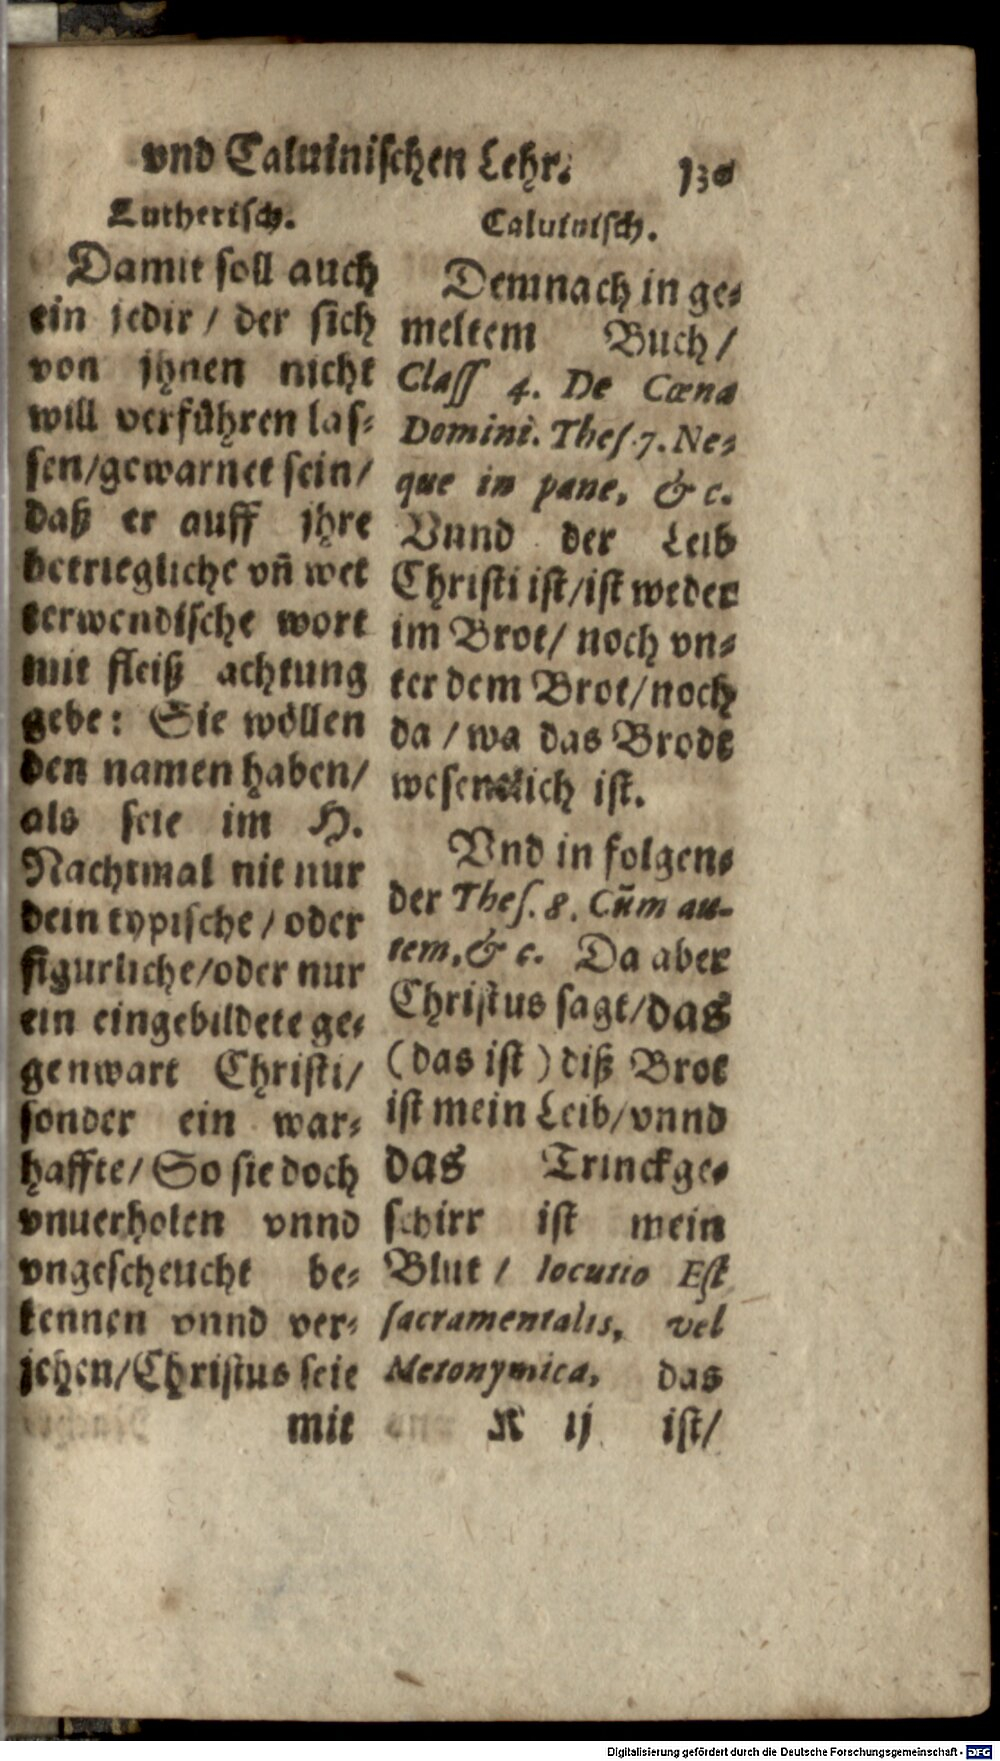 vnd Caluinischen Lehr. 130
Lutherisch.
Damit soll auch
ein jedir / der sich
von jhnen nicht
will verführen las-
sen/gewarnet sein/
daß er auff jhre
betriegliche vñ wet
terwendische wort
mit fleiß achtung
gebe: Sie wöllen
den namen haben/
als seie im H.
Nachtmal nit nur
dein typische / oder
figurliche/oder nur
ein eingebildete ge-
genwart Christi/
sonder ein war-
haffte/ So sie doch
vnuerholen vnnd
vngescheucht be-
kennen vnnd ver-
jehen/Christus seie
mit
Caluinisch.
Demnach in ge-
meltem Buch/
Class 4. De Cœna
Domini. Thes.7. Ne-
que in pane, & c.
Vnnd der Leib
Christi ist/ist weder
im Brot/ noch vn-
ter dem Brot/noch
da / wa das Brodt
wesentlich ist.
Vnd in folgen-
der Thes. 8. Cũm au-
tem,& c. Da aber
Christus sagt/das
(das ist) diß Brot
ist mein Leib/vnnd
das Trinckge-
schirr ist mein
Blut / locutio Est
sacramentalis, vel
Metonymica, das
R ij ist/
Digitalisierung gefördert durch die Deutsche Forschungsgemeinschaft - DFG